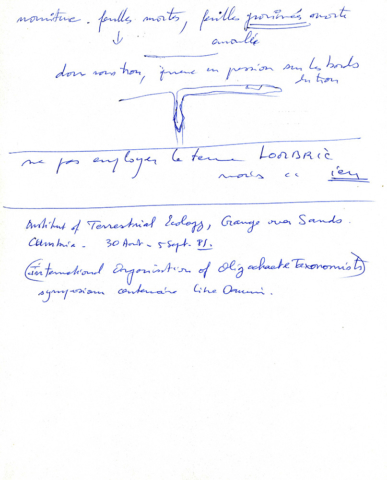 nourriture. feuilles mortes, feuilles morte
↓
dans son trou, en pression sur les bords
du trou
ne pas employer le terme LOMBRIC
mais
Institut of Terrestrial Ecology, Grange over Sands.
Cumbria. 30 Août - 5 Sept. 81.
(International Organisation of Oligochaete Taxonomists)
symposium centenaire livre Darwin.